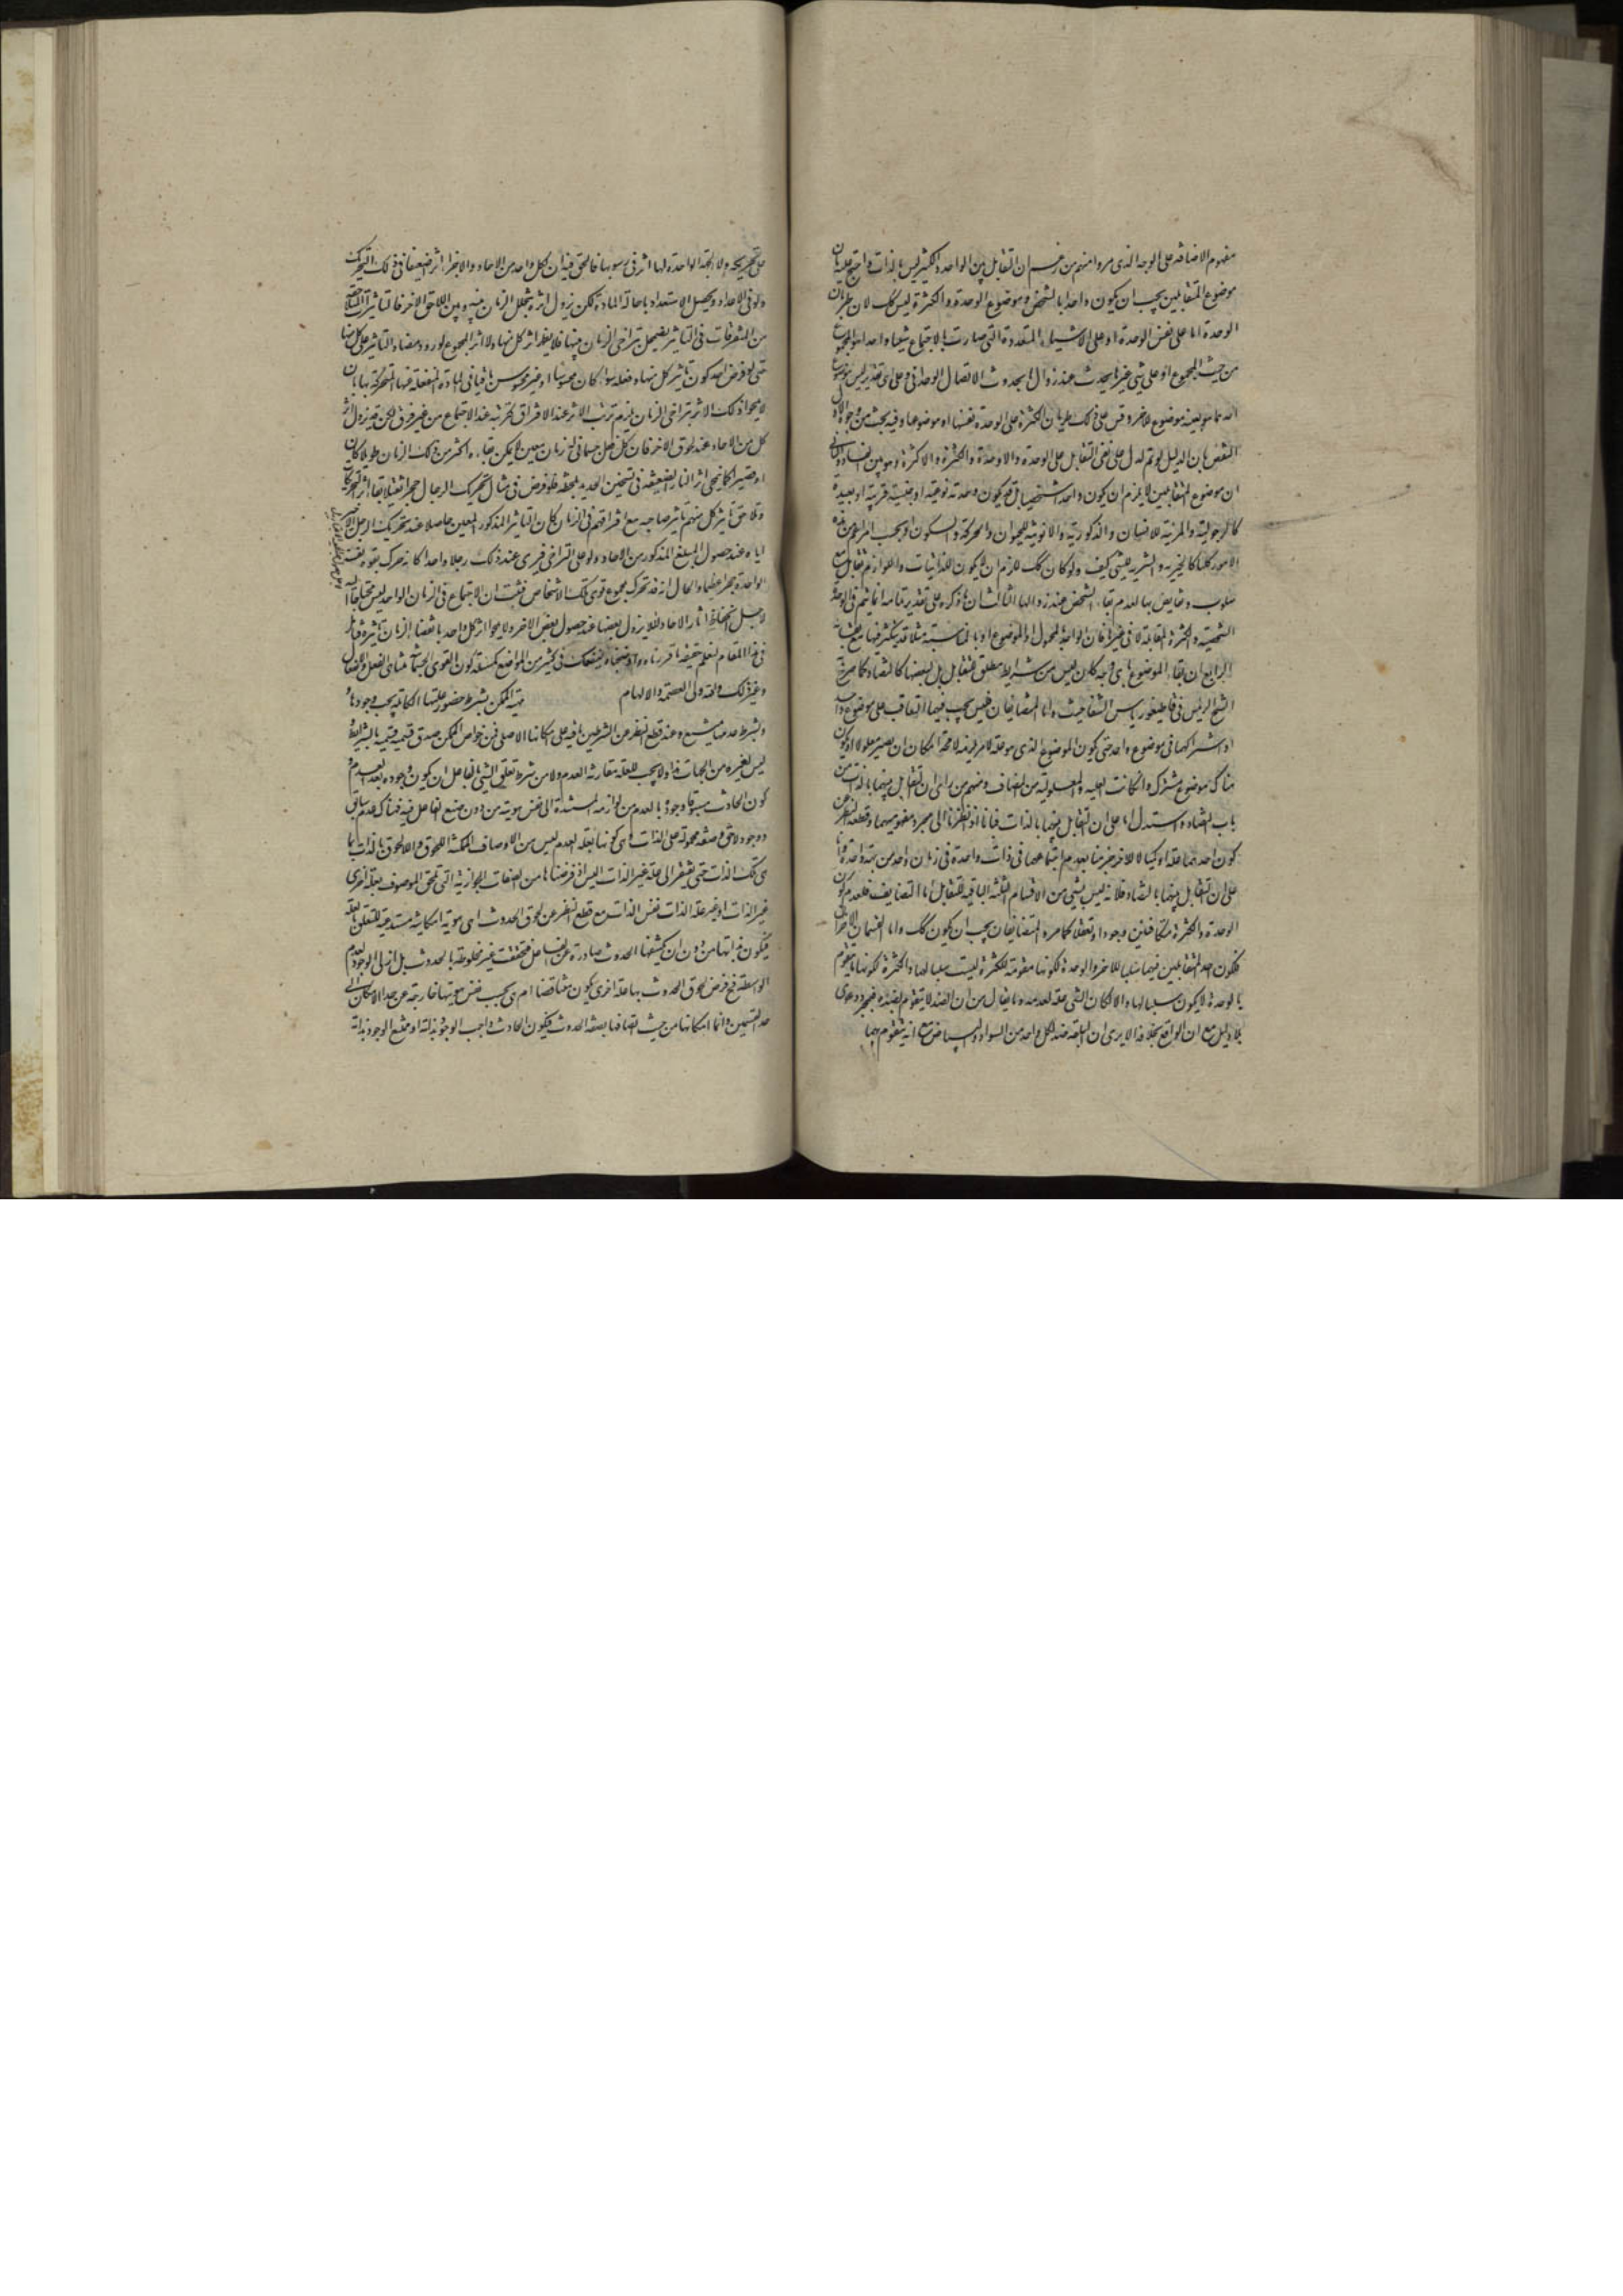 مفهوم الاضافة على الوجه الذى مر ومنهم من زعم ان التقابل بين الواحد والكثير ليس بالذات واحتج عليه بان
موضوع المتقابلين يجب ان يكون واحدا بالشخص وموضوع الوحدة والكثرة ليس كك لان طريان
الوحدة اما على نفس الوحدة او على الاشياء المتعددة التى صارت بالاجتماع شيئا واحدا هو المجموع
من حيث المجموع او على شىء غيرها يحدث عند زوال بحدوث الاتصال الوحدانى وعلى اى تقدير ليس موضوع
احدهما هو بعينه موضوع للاخر وقس على ذلك طريان الكثرة على الوحدة نفسها او موضوعها وفيه بحث من وجوه الاول
النقض بان الدليل لو تم لدل على نفى التقابل على الوحدة واللاوحدة والكثرة واللاكثرة وهو بين الفساد والثانى
ان موضوع المتقابلين لا يلزم ان يكون واحدا شخصيا بل قد يكون وحدته نوعية او جنسية قريبة او بعيدة
كالرجولية والمرئية للانسان والذكورية والانوثية للحيوان والحركة والسكون او بحسب امر اعم من هذه
الامور كلها كالخيرية والشرية للشىء كيف ولو كان كك للزم ان لا يكون للذاتيات واللوازم تقابل مع
سلوب ونقايض بها لعدم بقاء الشخص عند زوالها الثالث ان ما ذكره على تقدير تمامه انما يتم فى الوحدة
الشخصية والكثرة المقابلة لا فى غيرها فان الواحد بالمحمول او بالموضوع او بالمناسبة مثلا قد يتكثر فيها مع بقائه
الرابع ان بقاء الموضوع باى وجه كان ليس من شرايط مطلق التقابل بل بعضها كالتضاد كما صرح به
الشيخ الرئيس فى قاطيغورياس الشفا حيث واما المتضايفان فليس يجب فيهما التعاقب على موضوع واحد
او اشتراكهما فى موضوع واحد حتى يكون الموضوع الذى هو علة لامر يلزمه لا محالة امكان ان يصير معلولا او يكون
هناك موضوع مشترك وان كانت العلية والمعلولية من المضاف ومنهم من راى ان التقابل بينهما بالذات من
باب التضاد واستدل اما على ان التقابل بينهما بالذات فبانا اذا نظرنا الى مجرد مفهوميهما وقطعنا النظر عن
كون احدهما علة او مكيالا للاخر جزمنا بعدم اجتماعهما فى ذات واحدة فى زمان واحد من جهة واحدة واما
على ان التقابل بينهما بالتضاد فلانه ليس بشىء من الاقسام الثلثة الباقية للتقابل اما التضايف فلعدم كون
الوحدة والكثرة متكافئين وجودا وتعقلا كما مر والمتضايفان يجب ان يكون كك واما القسمان الاخران
فلكون احد المتقابلين فيهما سلبا للاخر والوحدة لكونها مقومة للكثرة ليست سلبا لها والكثرة لكونها متقوم
بالوحدة لا يكون سلبا لها والا لكان الشىء علة لعدمه وما يقال من ان الضد لا يتقوم بضده فمجرد دعوى
بلا دليل مع ان الواقع بخلافه الا يرى ان البلقة ضد لكل واحد من السواد والبياض مع انه يتقوم بهما
على تحريكه ولا الجهة الواحدة لها اثر فى رسوبها فالحق فيه ان لكل واحد من الاحاد والاجزاء اثر ضعيفا فى ذلك التحريك
ولو فى الاعداد وتحصيل الاستعداد باحالة المادة لكن يزول اثره بتخلل الزمان بينه وبين اللاحق الاخر فالتاثيرات
من المتفرقات فى التاثير يضمحل بتراخى الزمان بينها فلا يظهر اثر كل منها ولا اثر المجموع
حتى لو فرض احد كون تاثير كل منها وفعله سواء كان محسوسا او غير محسوس باقيا فى المادة المنفعلة عنها المتحركة بها بان
لا يمحو ذلك الاثر بتراخى الزمان يلزم ترتب الاثر عند الافتراق كترتبه عند الاجتماع من غير فرق لكن قد يزول اثر
كل من الاحاد عند لحوق الاخر فان لكل فعل جسمانى زمان معين لا يمكن بقاؤه اكثر من ذلك الزمان طويلا كان
او قصيرا كما ينمحى اثر النار الضعيفة فى تسخين الحديد بلحظة فلو فرض فى مثال تحريك الرجال حجرا ثقيلا بقاء اثر التحريكات
وتلاحق تاثير كل منهم تاثير صاحبه مع افتراقهم فى الزمان لكان التاثير المذكور المعين حاصلا عند تحريك الرجل الاخير
اياه عند حصول المبلغ المذكور من الاحاد ولو على التراخى فيرى عند ذلك رجلا واحدا كانه حرك بقوة نفسه
الواحدة حجرا عظيما والحال انه قد تحرك بمجموع قوى تلك الاشخاص فثبت ان الاجتماع فى الزمان الواحد ليس محتاجا اليه
لاجل انحفاظ اثار الاحاد لئلا يزول بعضها عند حصول بعض الاخر ولا يمحوا اثر كل واحد بانقضاء زمان تاثيره فتامل
فى هذا المقام لتعلم حقيقة ما قررناه واوضحناه لينفعك فى كثير من المواضع كمسئلة كون القوى الجسمانية متناهى الفعل والانفعال
وغير ذلك والله ولى العصمة والالهام مهية الممكن بشرط حضور علتها الكاملة يجب وجودها
وبشرط عدمها يمتنع وعند قطع النظر عن الشرطين باقية على امكانها الاصلى فمن خواص الممكن صدق قسيميه بالشرايط
ليس لغيره من الجهات هذا ولا يجب للعلة مقارنة العدم ولا من شرط تعلق الشىء بالفاعل ان يكون وجوده بعد العدم و
كون الحادث مسبوقا وجوده بالعدم من لوازمه المستندة الى نفس هويته من دون صنع الفاعل فيه فهناك عدم سابق
ووجود لاحق وصفة محمولة على الذات وهى كونها بعد العدم ليس من الاوصاف الممكنة اللحوق واللالحوق بالذات بما
هى تلك الذات حتى يفتقر الى علة غير الذات اليس اذا فرضناها من الصفات الجوازية التى تلحق الموصوف بعلة اخرى
غير الذات او غير علة الذات فنفس الذات مع قطع النظر عن لحوق الحدوث اهى هوية امكانية مستدعية للتعلق بالعلة
فيكون بذاتها من دون ان يكشفها الحدوث صادرة عن الفاعل فتحققت غير مخلوطة بالحدوث بل ازلى الوجود لعدم
الواسطة فمع فرض لحوق الحدوث بها علة اخرى يكون متناقضا ام هى بحسب نفس هويتها خارجة عن حد الامكان الى
احد القسمين وانما امكانها من حيث اتصافها بصفة الحدوث فيكون الحادث واجب الوجود بذاته او ممتنع الوجود بذاته